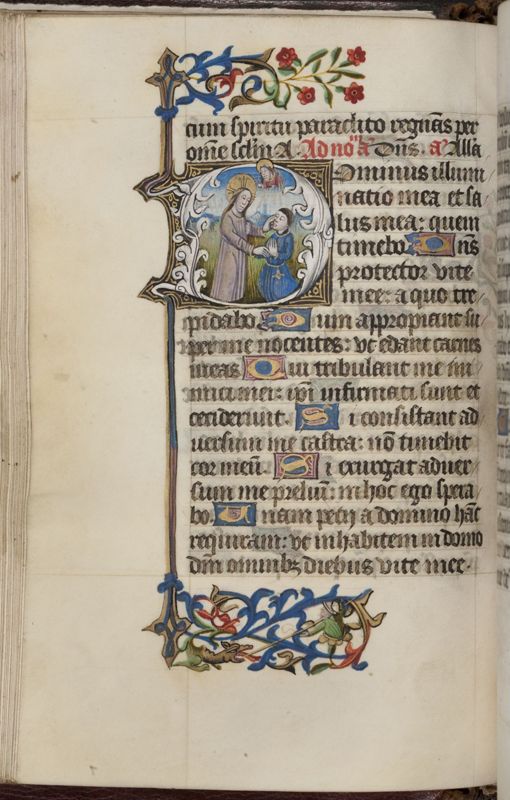 cum spiritu paraclito regnās per
om̄e sclm̄ A. Ad noct̄ ā Dn̄s. a Alla
Dominus illumi
natio mea et sa
lus mea: quem
timebo. Dn̄s
protector vite
mee: a quo tre
pidabo. Dum appropiant su
per me nocentes: vt edant carnes
meas. Qui tribulant me ini
mici mei: ipi infirmati sunt et
ceciderunt. Si consistant ad
versum me castra: nō timebit
cor meū. Si exurgat adver
sum me preliū: in hoc ego spera
bo. Unam petii a domino hāc
requiram: vt inhabitem in domo
dn̄i omnibꝫ diebus vite mee.